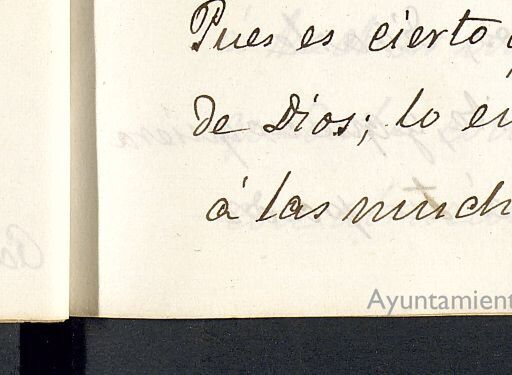 Pues es cierto
de Dios; lo en
á las much
Ayuntamient